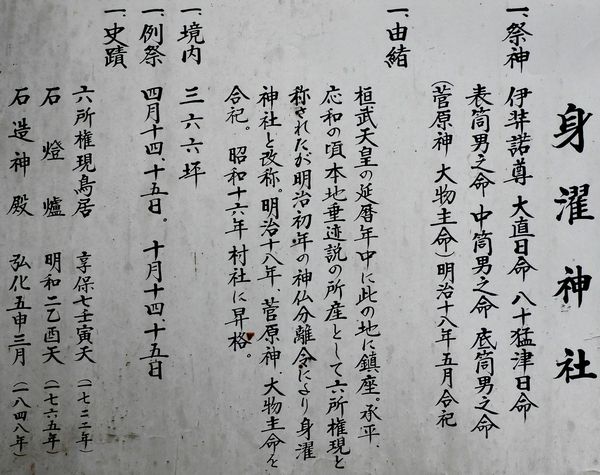 身濯神社
一、祭神 伊弉諾尊 大直日命 八十猛津日命
表筒男之命 中筒男之命 底筒男之命
(菅原神 大物主命)明治十八年五月合祀
一、由緒
桓武天皇の延暦年中に此の地に鎮座。承平、
応和の頃本地垂迹説の所産として六所権現と
称されたが明治初年の神仏分離令により身濯
神社と改称。明治十八年 菅原神、大物主命を
合祀。昭和十六年 村社に昇格。
一、境内 三六六坪
一、例祭 四月十四、十五日。 十月十四、十五日
一、史蹟
六所権現鳥居 享保七壬寅天 (一七二二年)
石燈爐 明和二乙酉天 (一七六五年)
石造神殿 弘化五申三月 (一八四八年)